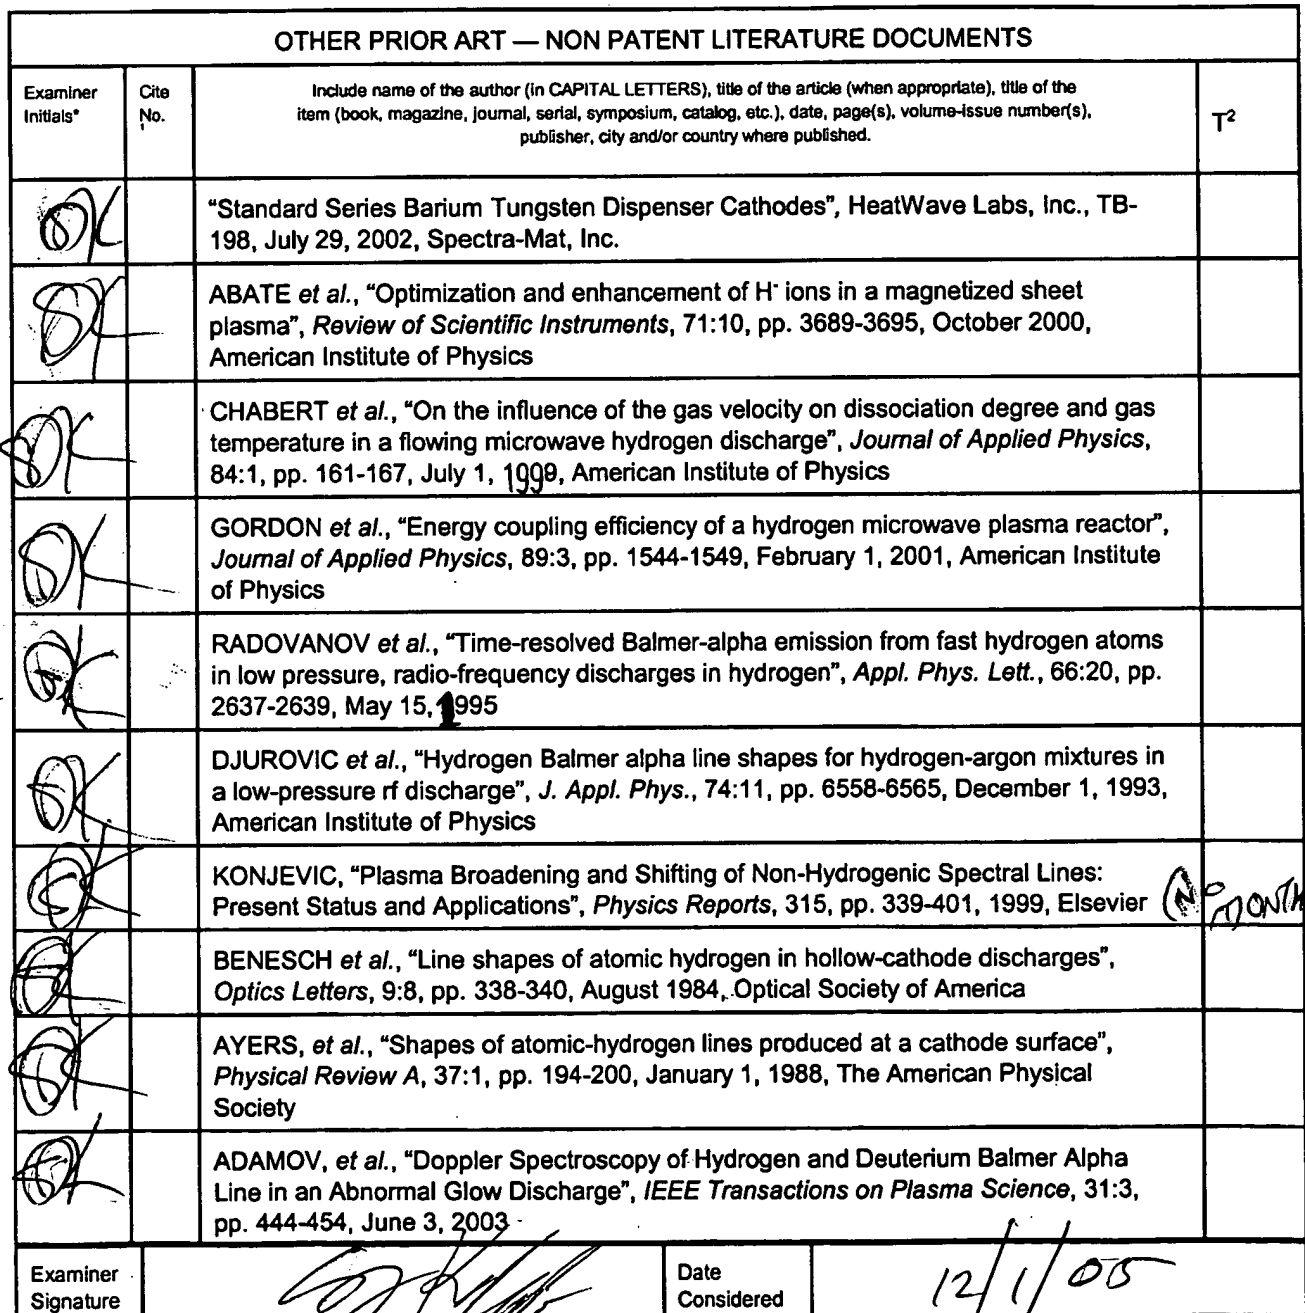 OTHER PRIOR ART — NON PATENT LITERATURE DOCUMENTS
Examiner
Initials*
Cite
No.
1
Include name of the author (in CAPITAL LETTERS), title of the article (when appropriate), title of the
item (book, magazine, journal, serial, symposium, catalog, etc.), date, page(s), volume-issue number(s),
publisher, city and/or country where published.
T²
"Standard Series Barium Tungsten Dispenser Cathodes", HeatWave Labs, Inc., TB-
198, July 29, 2002, Spectra-Mat, Inc.
ABATE et al., "Optimization and enhancement of H⁻ ions in a magnetized sheet
plasma", Review of Scientific Instruments, 71:10, pp. 3689-3695, October 2000,
American Institute of Physics
CHABERT et al., "On the influence of the gas velocity on dissociation degree and gas
temperature in a flowing microwave hydrogen discharge", Journal of Applied Physics,
84:1, pp. 161-167, July 1, 1998, American Institute of Physics
GORDON et al., "Energy coupling efficiency of a hydrogen microwave plasma reactor",
Journal of Applied Physics, 89:3, pp. 1544-1549, February 1, 2001, American Institute
of Physics
RADOVANOV et al., "Time-resolved Balmer-alpha emission from fast hydrogen atoms
in low pressure, radio-frequency discharges in hydrogen", Appl. Phys. Lett., 66:20, pp.
2637-2639, May 15, 1995
DJUROVIC et al., "Hydrogen Balmer alpha line shapes for hydrogen-argon mixtures in
a low-pressure rf discharge", J. Appl. Phys., 74:11, pp. 6558-6565, December 1, 1993,
American Institute of Physics
KONJEVIC, "Plasma Broadening and Shifting of Non-Hydrogenic Spectral Lines:
Present Status and Applications", Physics Reports, 315, pp. 339-401, 1999, Elsevier (NO MONTH
BENESCH et al., "Line shapes of atomic hydrogen in hollow-cathode discharges",
Optics Letters, 9:8, pp. 338-340, August 1984, Optical Society of America
AYERS, et al., "Shapes of atomic-hydrogen lines produced at a cathode surface",
Physical Review A, 37:1, pp. 194-200, January 1, 1988, The American Physical
Society
ADAMOV, et al., "Doppler Spectroscopy of Hydrogen and Deuterium Balmer Alpha
Line in an Abnormal Glow Discharge", IEEE Transactions on Plasma Science, 31:3,
pp. 444-454, June 3, 2003
Examiner
Signature
Date
Considered
12/1/05